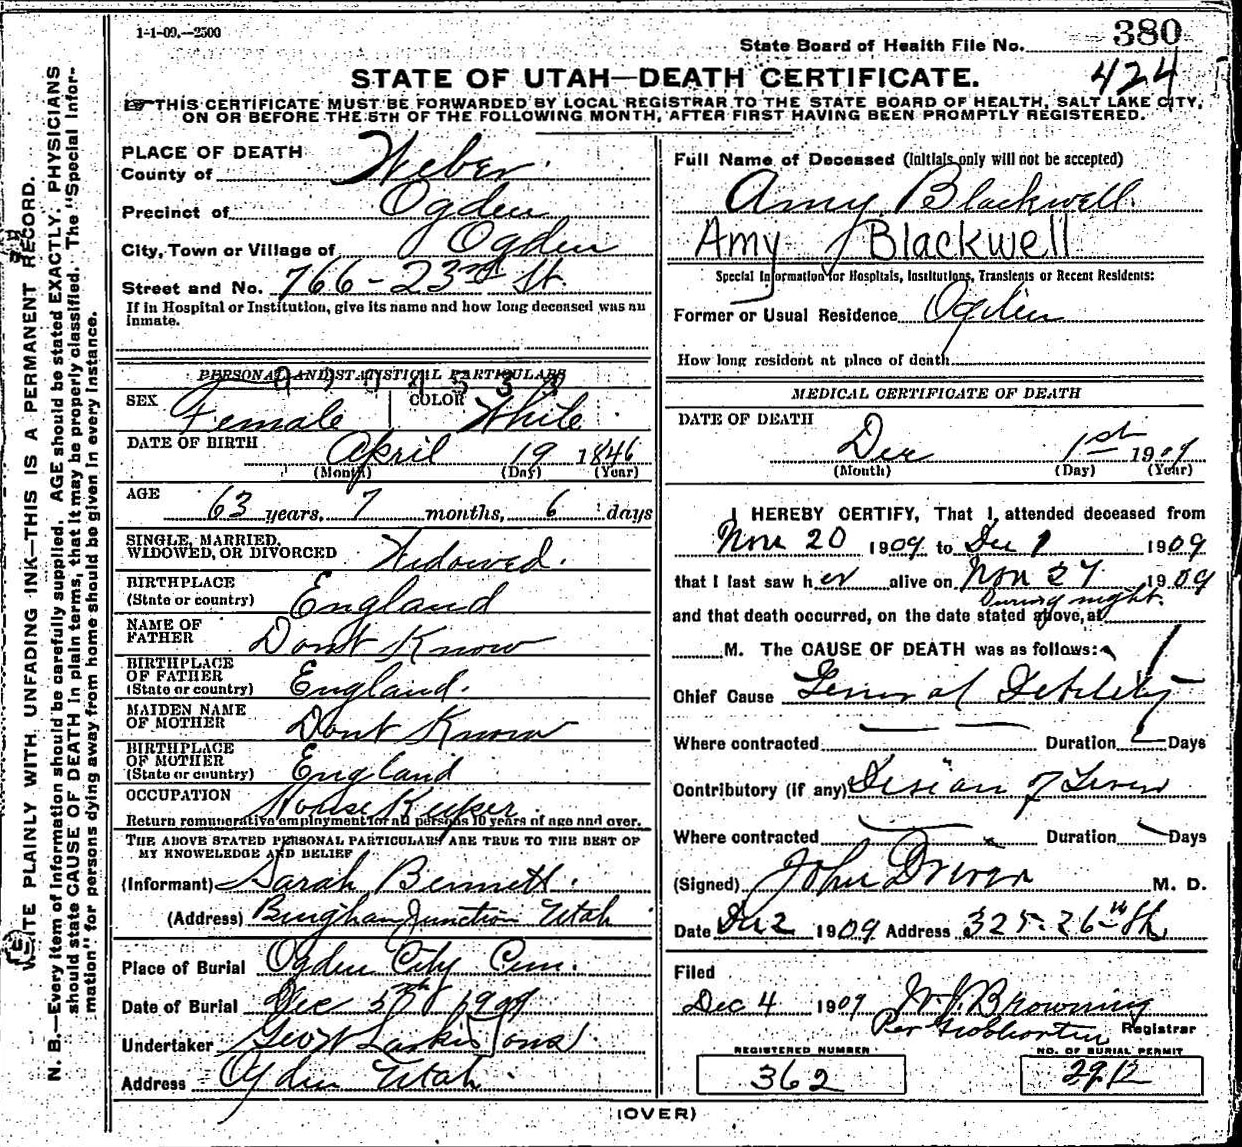 1-1-09.—2500
State Board of Health File No. 380
424
STATE OF UTAH—DEATH CERTIFICATE.
THIS CERTIFICATE MUST BE FORWARDED BY LOCAL REGISTRAR TO THE STATE BOARD OF HEALTH, SALT LAKE CITY,
ON OR BEFORE THE 5TH OF THE FOLLOWING MONTH, AFTER FIRST HAVING BEEN PROMPTLY REGISTERED.
WRITE PLAINLY WITH UNFADING INK—THIS IS A PERMANENT RECORD.
N. B.—Every item of information should be carefully supplied. AGE should be stated EXACTLY. PHYSICIANS
should state CAUSE OF DEATH in plain terms, that it may be properly classified. The "Special Infor-
mation" for persons dying away from home should be given in every instance.
PLACE OF DEATH
County of Weber
Precinct of Ogden
City, Town or Village of Ogden
Street and No. 766-23rd St.
If in Hospital or Institution, give its name and how long deceased was an
Inmate.
PERSONAL AND STATISTICAL PARTICULARS
SEX Female COLOR White
DATE OF BIRTH April 19 1846
(Month) (Day) (Year)
AGE 63 years, 7 months, 6 days
SINGLE, MARRIED,
WIDOWED, OR DIVORCED Widowed.
BIRTHPLACE
(State or country) England
NAME OF
FATHER Dont Know
BIRTHPLACE
OF FATHER
(State or country) England.
MAIDEN NAME
OF MOTHER Dont Know
BIRTHPLACE
OF MOTHER
(State or country) England
OCCUPATION House Keeper.
Return remunerative employment for all persons 10 years of age and over.
THE ABOVE STATED PERSONAL PARTICULARS ARE TRUE TO THE BEST OF
MY KNOWLEDGE AND BELIEF
(Informant) Sarah Bennett.
(Address) Bingham Junction Utah
Place of Burial Ogden City Cem.
Date of Burial Dec 5th 1909
Undertaker Larkin Sons
Address Ogden Utah.
Full Name of Deceased (Initials only will not be accepted)
Amy Blackwell.
Amy Blackwell
Special Information for Hospitals, Institutions, Transients or Recent Residents:
Former or Usual Residence Ogden
How long resident at place of death
MEDICAL CERTIFICATE OF DEATH
DATE OF DEATH
Dec 1st 1909
(Month) (Day) (Year)
I HEREBY CERTIFY, That I attended deceased from
Nov 20 1909 to Dec 1 1909
that I last saw her alive on Nov 27 1909
During night.
and that death occurred, on the date stated above, at
M. The CAUSE OF DEATH was as follows:
Chief Cause General Debility
Where contracted Duration Days
Contributory (if any) of Liver
Where contracted Duration Days
(Signed) John Driver M. D.
Date Dec 2 1909 Address 325-26th St,
Filed
Dec 4 1909 Browning
Per Registrar
REGISTERED NUMBER
362
NO. OF BURIAL PERMIT
2912
(OVER)